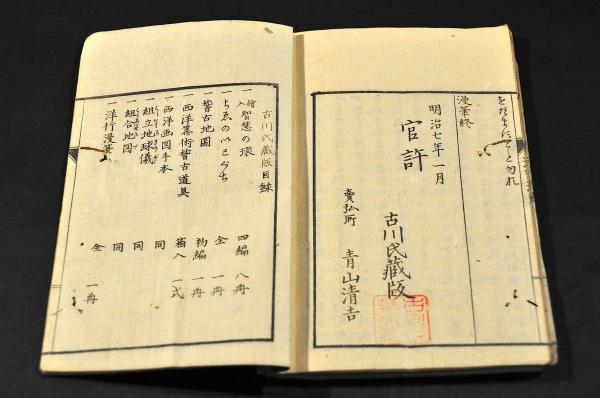 をだまにすると勿れ
漫筆終
明治七年一月
官許
古川氏藏版
賣弘所 青山清吉
古川氏藏版目録
一 繪入 智慧の環 四編 八冊
一 ちゑのいとぐち 全 一冊
一 稽古地圖 初編 一冊
一 西洋算術稽古道具 箱入 一式
一 西洋画図手本 同
一 組立地球儀 同
一 組合地図 同
一 洋行漫筆 全 一冊